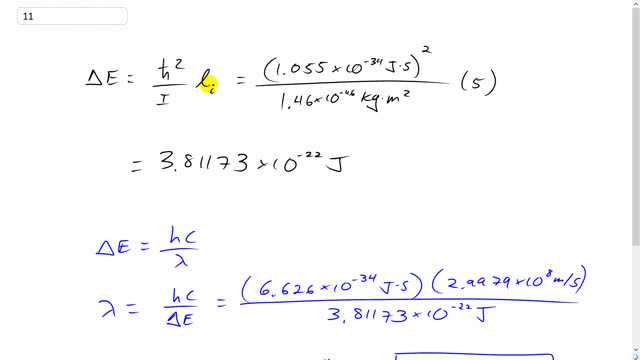 11
ΔE = ħ²/I l_i = (1.055×10⁻³⁴ J·s)²/1.46×10⁻⁴⁶ kg·m² (5)
= 3.81173×10⁻²² J
ΔE = hc/λ
λ = hc/ΔE = (6.626×10⁻³⁴ J·s)(2.9979×10⁸ m/s)/3.81173×10⁻²² J